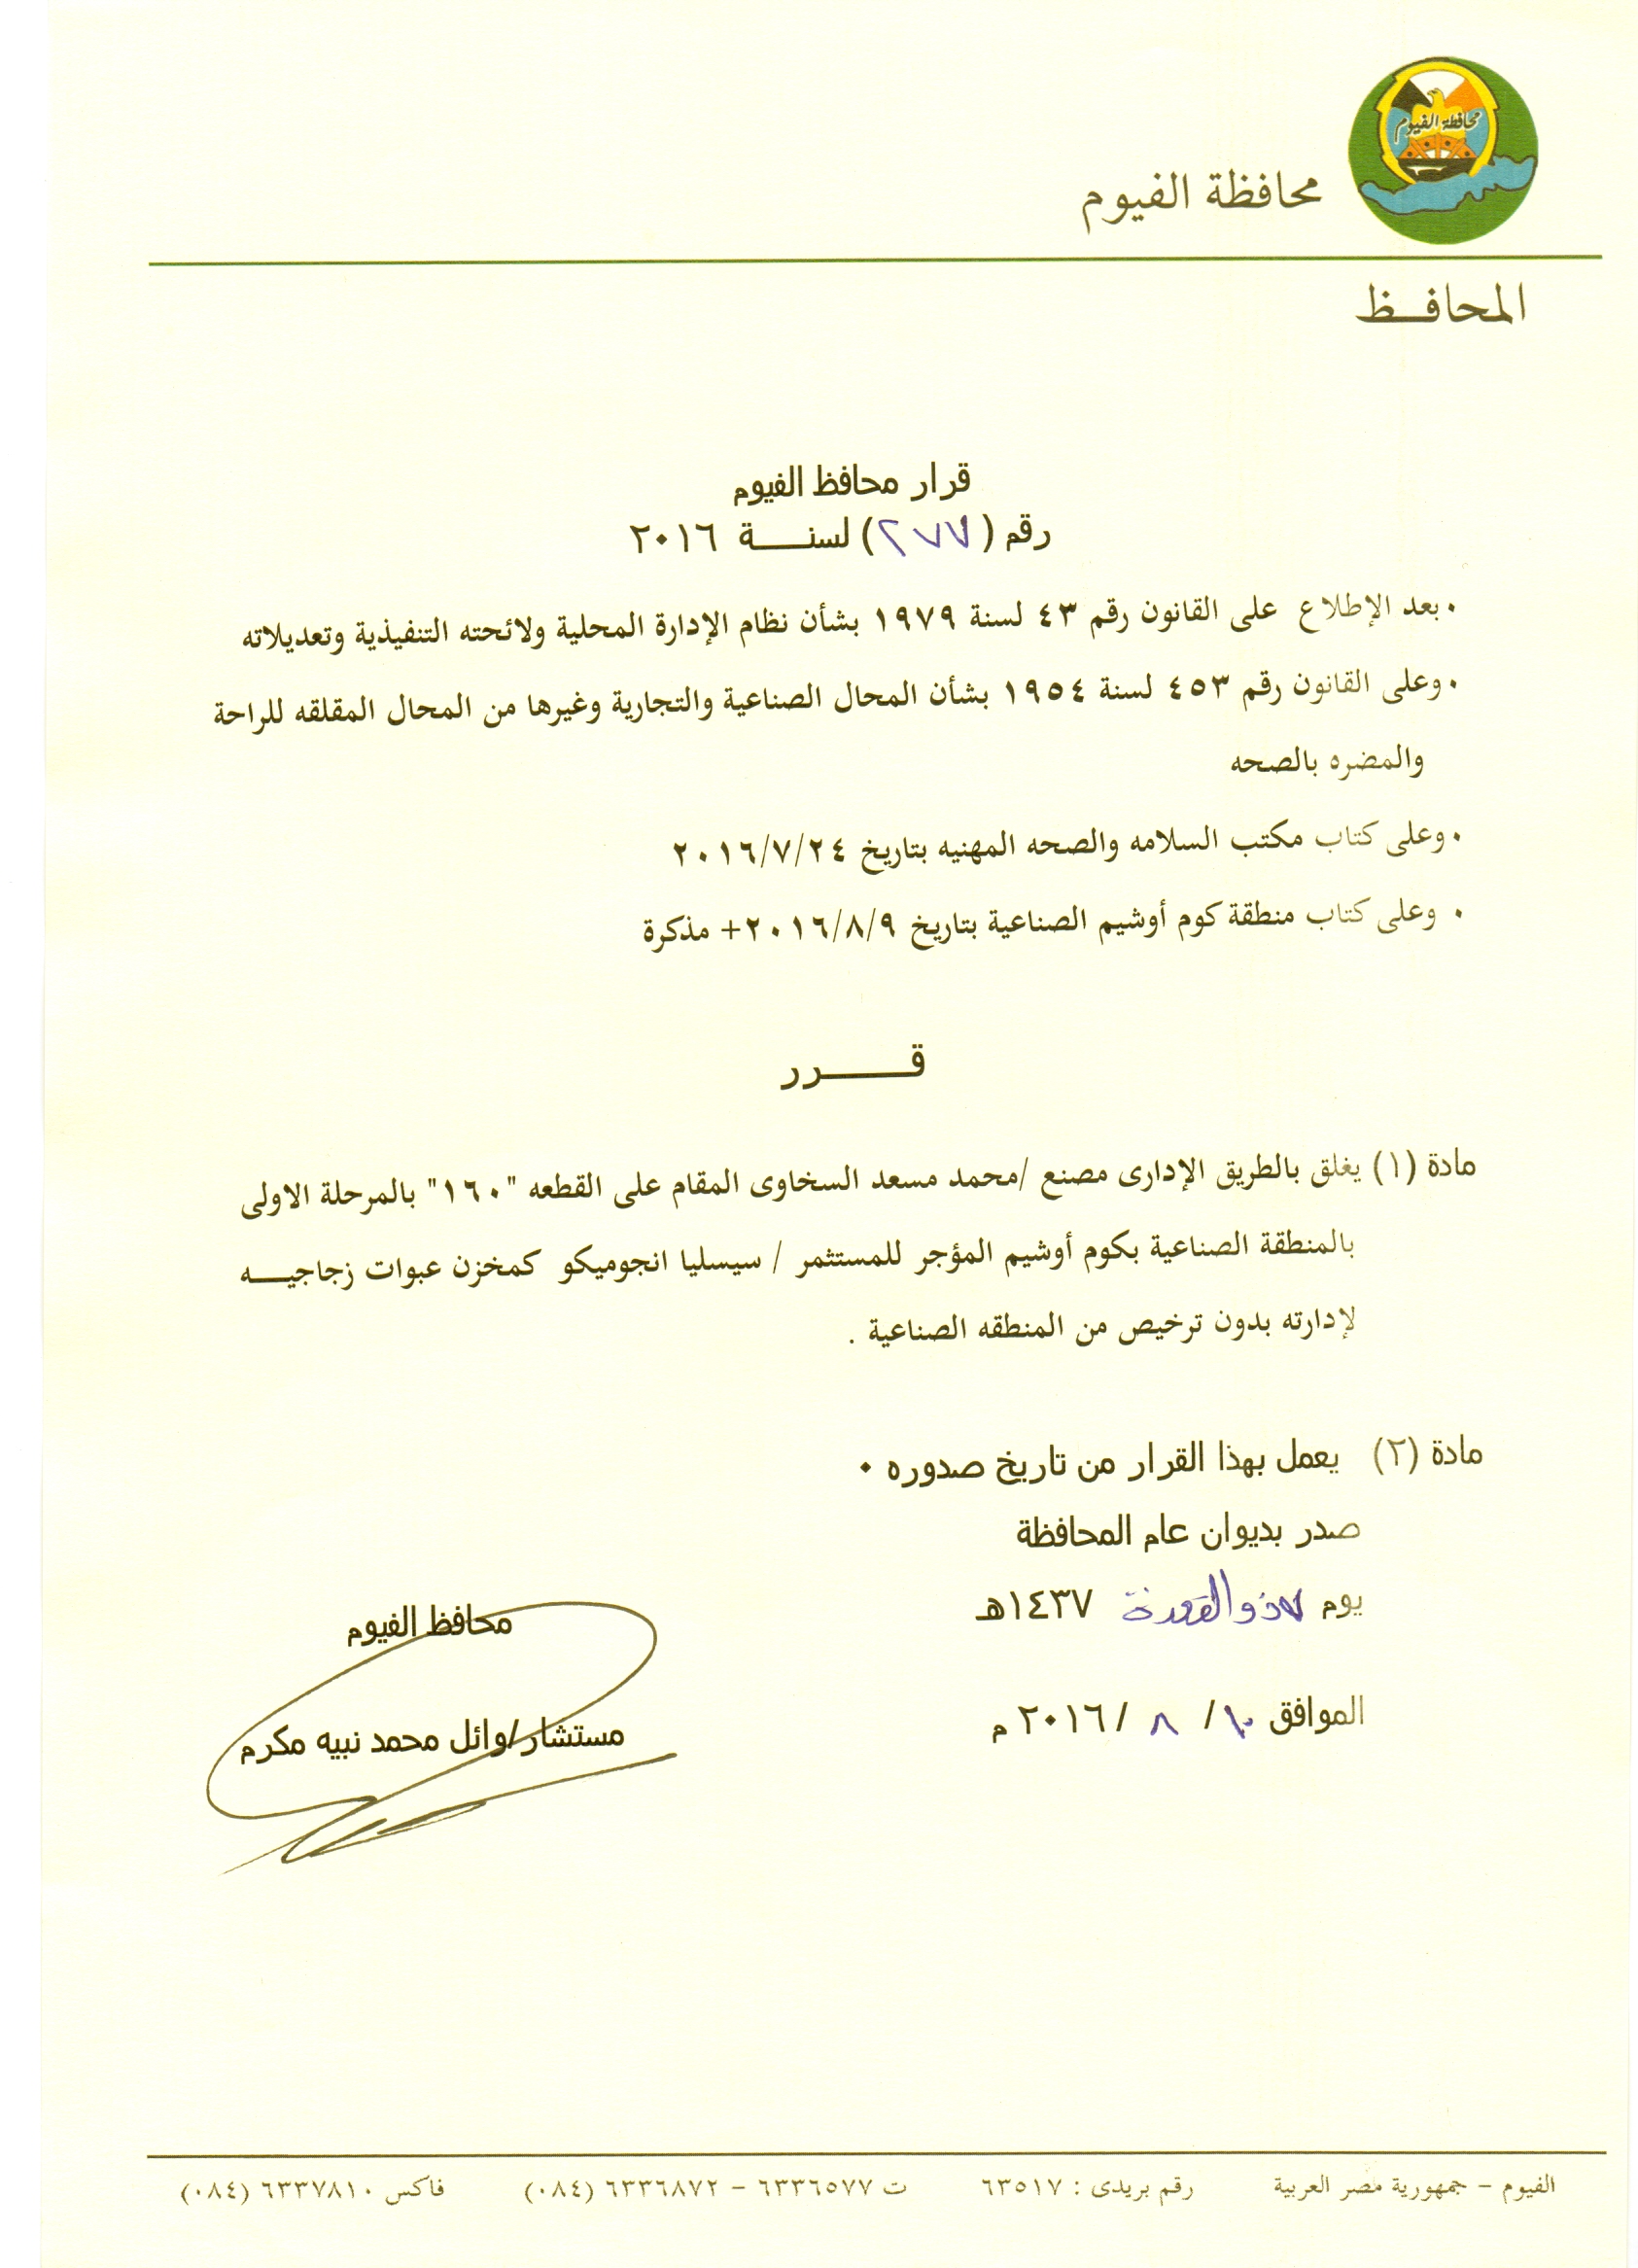 محافظة الفيوم
محافظة الفيوم
المحافــظ
قرار محافظ الفيوم
رقم (٢٧٧) لسنــــة ٢٠١٦
• بعد الإطلاع على القانون رقم ٤٣ لسنة ١٩٧٩ بشأن نظام الإدارة المحلية ولائحته التنفيذية وتعديلاته
• وعلى القانون رقم ٤٥٣ لسنة ١٩٥٤ بشأن المحال الصناعية والتجارية وغيرها من المحال المقلقه للراحة
والمضره بالصحه
• وعلى كتاب مكتب السلامه والصحه المهنيه بتاريخ ٢٠١٦/٧/٢٤
• وعلى كتاب منطقة كوم أوشيم الصناعية بتاريخ ٢٠١٦/٨/٩+ مذكرة
قــــــرر
مادة (١) يغلق بالطريق الإدارى مصنع /محمد مسعد السخاوى المقام على القطعه "١٦٠" بالمرحلة الاولى
بالمنطقة الصناعية بكوم أوشيم المؤجر للمستثمر / سيسليا انجوميكو كمخزن عبوات زجاجيــــه
لإدارته بدون ترخيص من المنطقه الصناعية .
مادة (٢) يعمل بهذا القرار من تاريخ صدوره •
صدر بديوان عام المحافظة
يوم ذو القعدة ١٤٣٧هـ
الموافق ١٠/ ٨ /٢٠١٦ م
محافظ الفيوم
مستشار/وائل محمد نبيه مكرم
الفيوم – جمهورية مصر العربية رقم بريدى : ٦٣٥١٧ ت ٦٣٣٦٥٧٧ – ٦٣٣٦٨٧٢ (٠٨٤) فاكس ٦٣٣٧٨١٠ (٠٨٤)